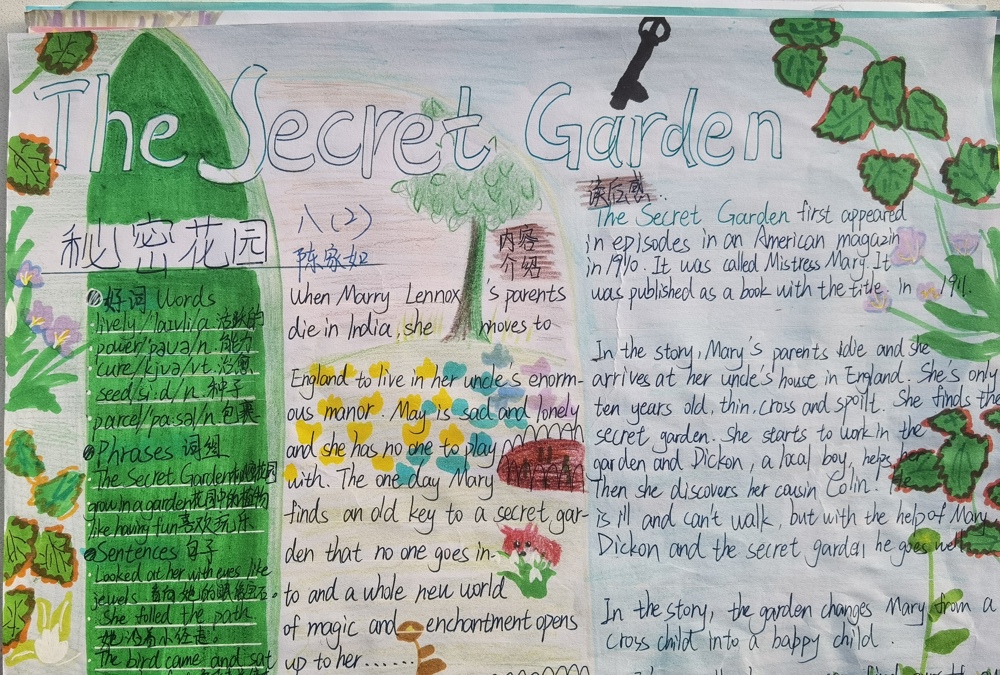 The Secret Garden
秘密花园
八(2)
陈家如
好词 Words
lively//laivli/a 活跃的
power/paua/n. 能力
cure/kjva/vt. 治愈
seed/si:d/n. 种子
parcel/pa:sal/n. 包裹
Phrases 词组
The Secret Garden 秘密花园
grow in a garden 花园中的植物
like having fun 喜欢玩乐
Sentences 句子
Looked at her with eyes like
jewels
She folled the path
她沿着小径走。
The bird came and sat
内容
介绍
When Marry Lennox's parents
die in India, she moves to
England to live in her uncle's enorm-
ous manor. May is sad and lonely
and she has no one to play
with. The one day Mary
finds an old key to a secret gar-
den that no one goes in-
to and a whole new world
of magic and enchantment opens
up to her......
读后感..
The Secret Garden first appeared
in episodes in an American magazin
in 1910. It was called Mistress Mary. It
was published as a book with the title. in 1911.
In the story, Mary's parents die and she
arrives at her uncle's house in England. She's only
ten years old, thin, cross and spoilt. She finds the
secret garden. She starts to work in the
garden and Dickon, a local boy, helps
Then she discovers her cousin Colin. He
is ill and can't walk, but with the help of Mary
Dickon and the secret garden he goes well.
In the story, the garden changes Mary from a
cross child into a bappy child.